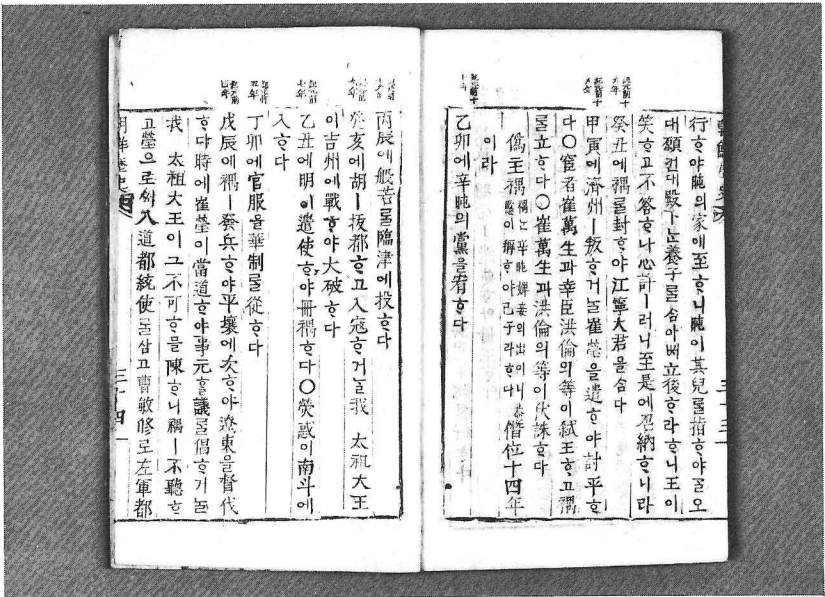 行ᄒᆞ야 旽의 家에 至ᄒᆞ니 旽이 其兒ᄅᆞᆯ 指ᄒᆞ야 ᄀᆞᆯ오
대 願컨대 殿下ᄂᆞᆫ 養子ᄅᆞᆯ 삼아뻐 立後ᄒᆞ라 ᄒᆞ니 王이
笑ᄒᆞ고 不答ᄒᆞ나 心許ㅣ러니 至是에 召納ᄒᆞ니라
癸丑에 禑ᄅᆞᆯ 封ᄒᆞ야 江寧大君을 삼다
甲寅에 濟州ㅣ 叛ᄒᆞ거ᄂᆞᆯ 崔瑩을 遣ᄒᆞ야 討平ᄒᆞ
다 ○ 宦者 崔萬生과 幸臣 洪倫의 等이 弑王ᄒᆞ고 禑
ᄅᆞᆯ 立ᄒᆞ다 ○ 崔萬生과 洪倫의 等이 伏誅ᄒᆞ다
僞主禑 禑ᄂᆞᆫ 辛旽 婢妾의 出이니 恭愍이 稱ᄒᆞ야 己子라 ᄒᆞ다 僭位十四年
이라
乙卯에 辛旽의 黨을 宥ᄒᆞ다
丙辰에 般若ᄅᆞᆯ 臨津에 投ᄒᆞ다
癸亥에 胡ㅣ 拔都ᄒᆞ고 入寇ᄒᆞ거ᄂᆞᆯ 我 太祖大王
이 吉州에 戰ᄒᆞ야 大破ᄒᆞ다
乙丑에 明이 遣使ᄒᆞ야 冊禑ᄒᆞ다 ○ 熒惑이 南斗에
入ᄒᆞ다
丁卯에 官服을 華制ᄅᆞᆯ 從ᄒᆞ다
戊辰에 禑ㅣ 發兵ᄒᆞ야 平壤에 次ᄒᆞ야 遼東을 督伐
ᄒᆞ다 時에 崔瑩이 當道ᄒᆞ야 事元ᄒᆞᆯ 議ᄅᆞᆯ 倡ᄒᆞ거ᄂᆞᆯ
我 太祖大王이 그 不可ᄒᆞᆷ을 陳ᄒᆞ니 禑ㅣ 不聽ᄒᆞ
고 瑩으로써 八道都統使ᄅᆞᆯ 삼고 曹敏修로 左軍都
朝鮮歷史
三十四